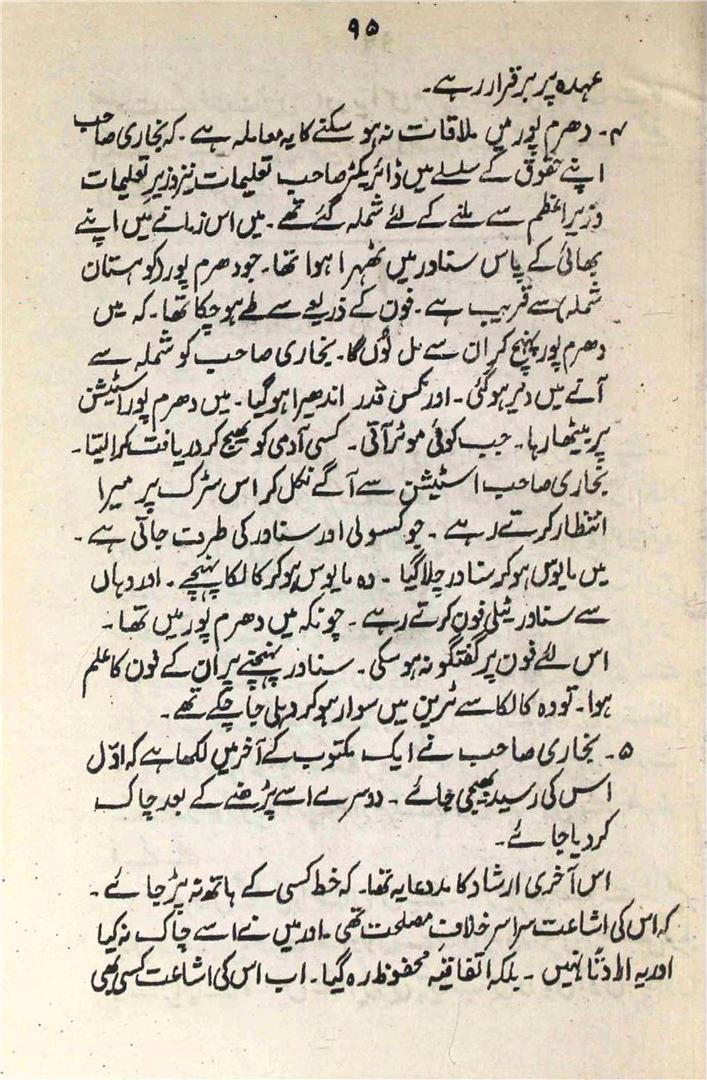 ۹۵
عہدہ پر برقرار رہے۔
۴۔ دھرم پور میں ملاقات نہ ہو سکنے کا یہ معاملہ ہے۔ کہ بخاری صاحب
اپنے حقوق کے سلسلے میں ڈائریکٹر صاحب تعلیمات نیز وزیرِ تعلیمات
وزیرِ اعظم سے ملنے کے لئے شملہ گئے تھے۔ میں اس زمانے میں اپنے
بھائی کے پاس سنادر میں ٹھہرا ہوا تھا۔ جو دھرم پور (کوہستان
شملہ) سے قریب ہے۔ فون کے ذریعے سے طے ہو چکا تھا۔ کہ میں
دھرم پور پہنچ کر ان سے مل لوں گا۔ بخاری صاحب کو شملہ سے
آنے میں دیر ہو گئی۔ اور کسی قدر اندھیرا ہو گیا۔ میں دھرم پور اسٹیشن
پر بیٹھا رہا۔ جب کوئی موٹر آتی۔ کسی آدمی کو بھیج کر دریافت کرا لیتا۔
بخاری صاحب اسٹیشن سے آگے نکل کر اس سڑک پر میرا
انتظار کرتے رہے۔ جو کسولی اور سنادر کی طرف جاتی ہے۔
میں مایوس ہو کر سنادر چلا گیا۔ وہ مایوس ہو کر کالکا پہنچے۔ اور وہاں
سے سنادر ٹیلی فون کرتے رہے۔ چونکہ میں دھرم پور میں تھا۔
اس لئے فون پر گفتگو نہ ہو سکی۔ سنادر پہنچنے پر ان کے فون کا علم
ہوا۔ تو وہ کالکا سے ٹرین میں سوار ہو کر دہلی جا چکے تھے۔
۵۔ بخاری صاحب نے ایک مکتوب کے آخر میں لکھا ہے کہ اوّل
اس کی رسید بھیجی جائے۔ دوسرے اسے پڑھنے کے بعد چاک
کر دیا جائے۔
اس آخری ارشاد کا مدعا یہ تھا۔ کہ خط کسی کے ہاتھ نہ پڑ جائے۔
کہ اس کی اشاعت سراسر خلافِ مصلحت تھی۔ اور میں نے اسے چاک نہ کیا
اور یہ ارادتاً نہیں۔ بلکہ اتفاقیہ محفوظ رہ گیا۔ اب اس کی اشاعت کسی بھی